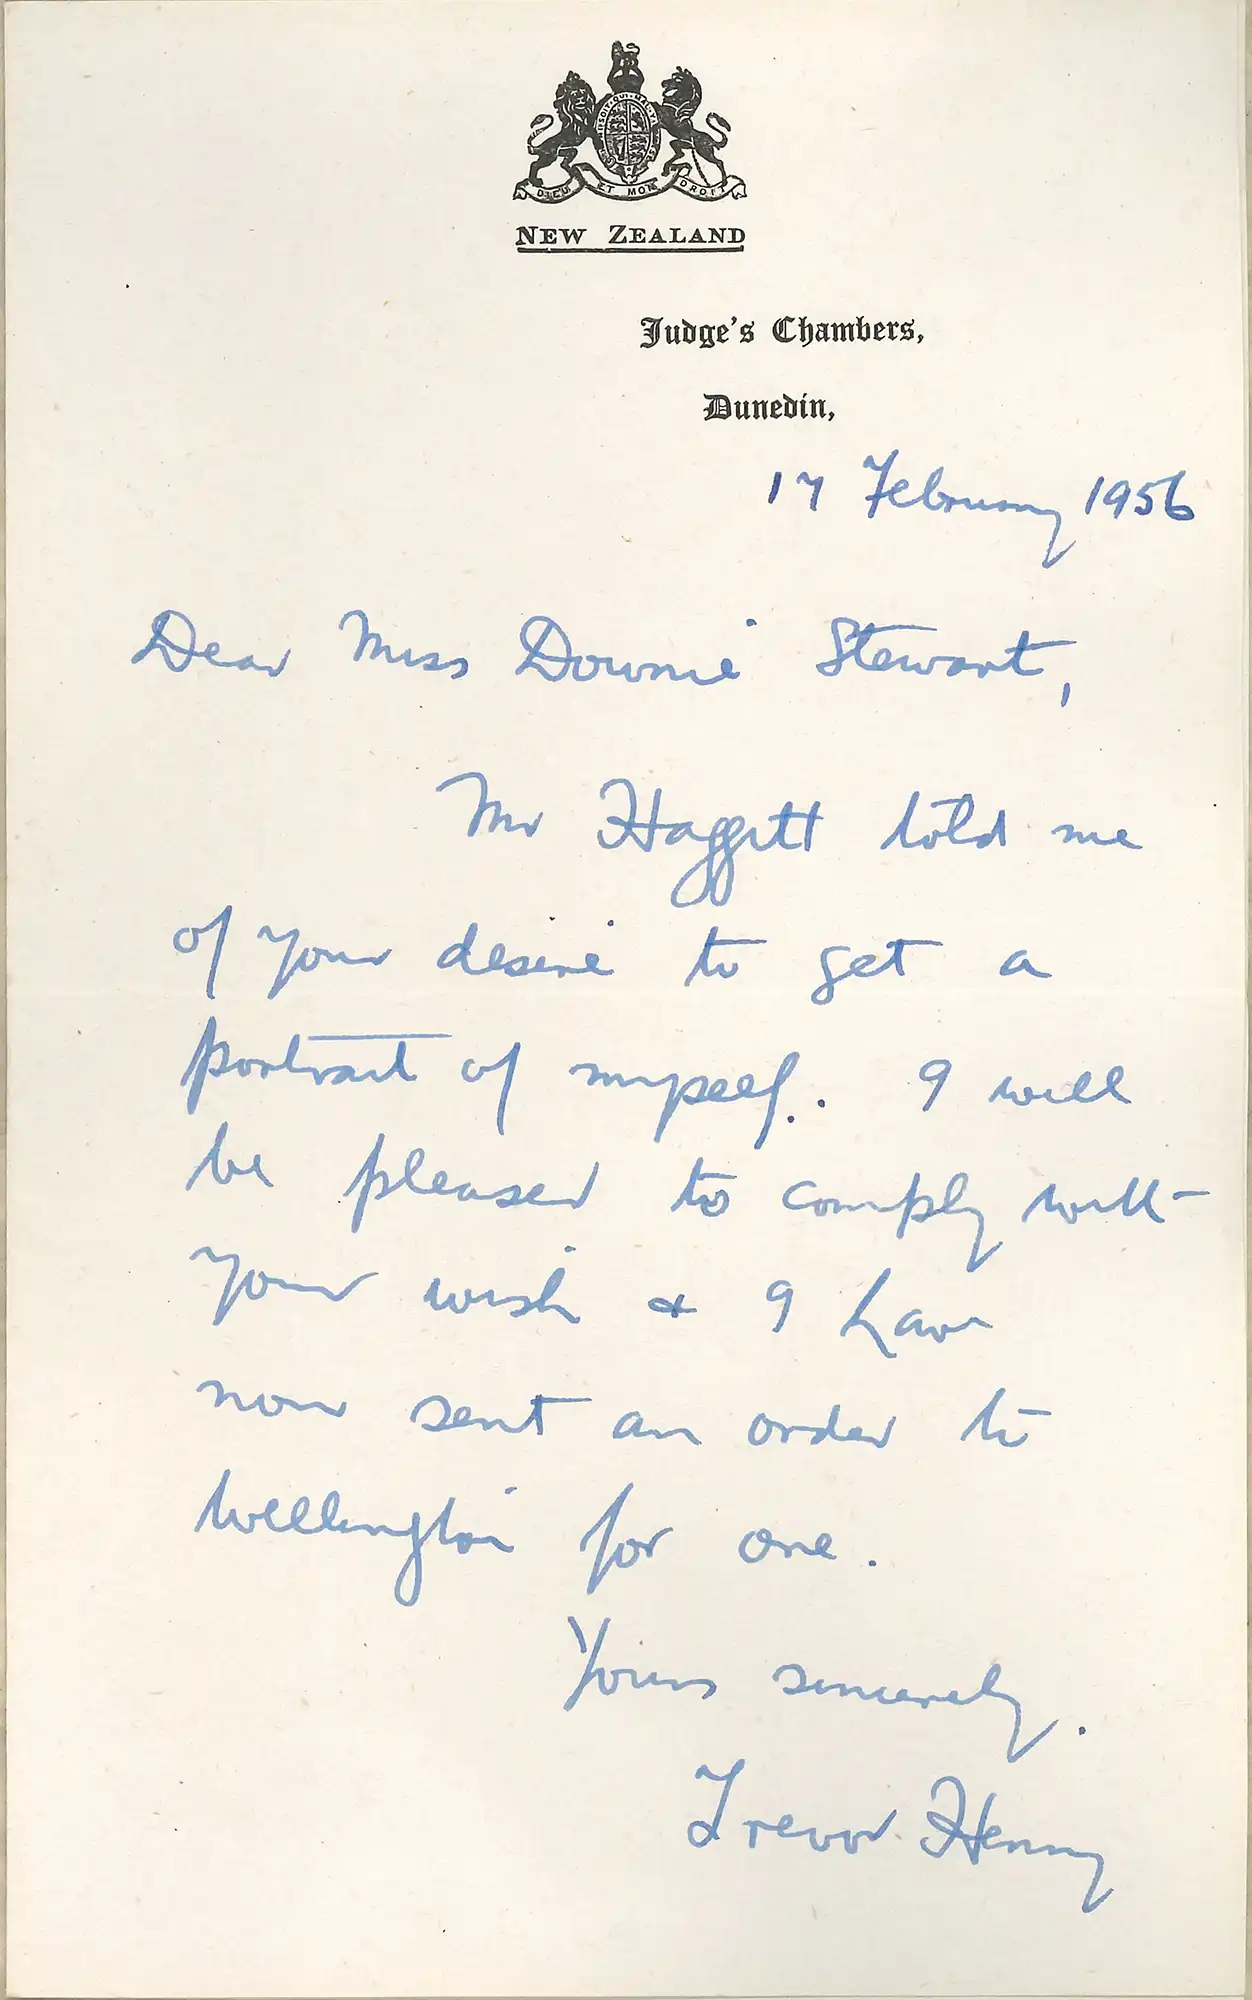 HONI SOIT QUI MAL Y PENSE
DIEU ET MON DROIT
NEW ZEALAND
Judge's Chambers,
Dunedin,
17 February 1956
Dear Miss Downie Stewart,
Mr Haggitt told me
of your desire to get a
portrait of myself. I will
be pleased to comply with
your wish & I have
now sent an order to
Wellington for one.
Yours sincerely.
Trevor Henry